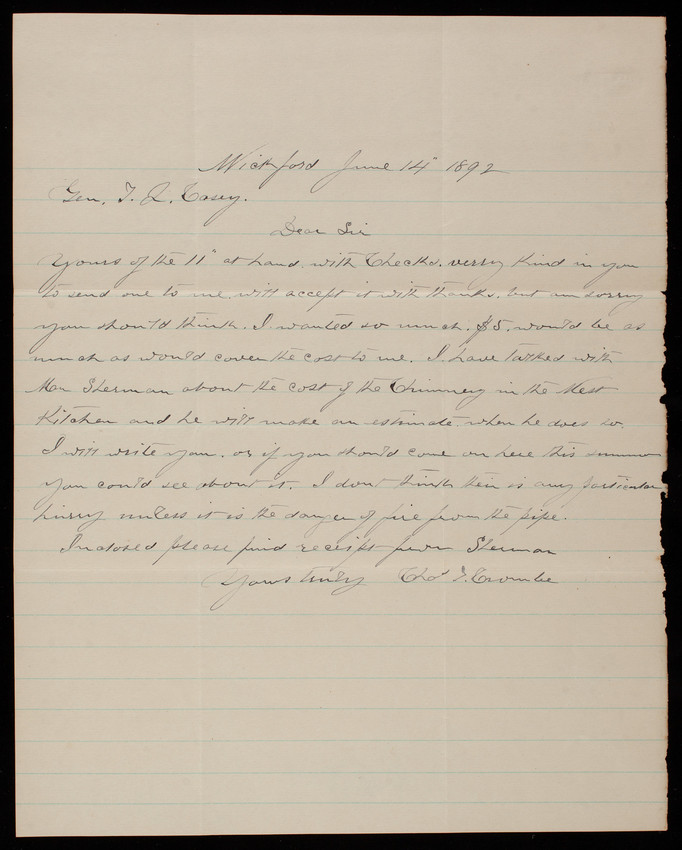 Wickford June 14" 1892
Gen. T. L. Casey.
Dear Sir
Yours of the 11" at hand. with Checks. verry kind in you
to send one to me. will accept it with thanks. but am sorry
you should think. I wanted so much. $5. would be as
much as would cover the cost to me. I have talked with
Mr Sherman about the cost of the Chimney in the West
Kitchen and he will make an estimate. when he does so.
I will write you. or if you should come on here this summer
you could see about it. I dont think their is any particular
hurry unless it is the danger of fire from the pipe.
Inclosed please find receipt from Sherman
Yours truly Thos T.